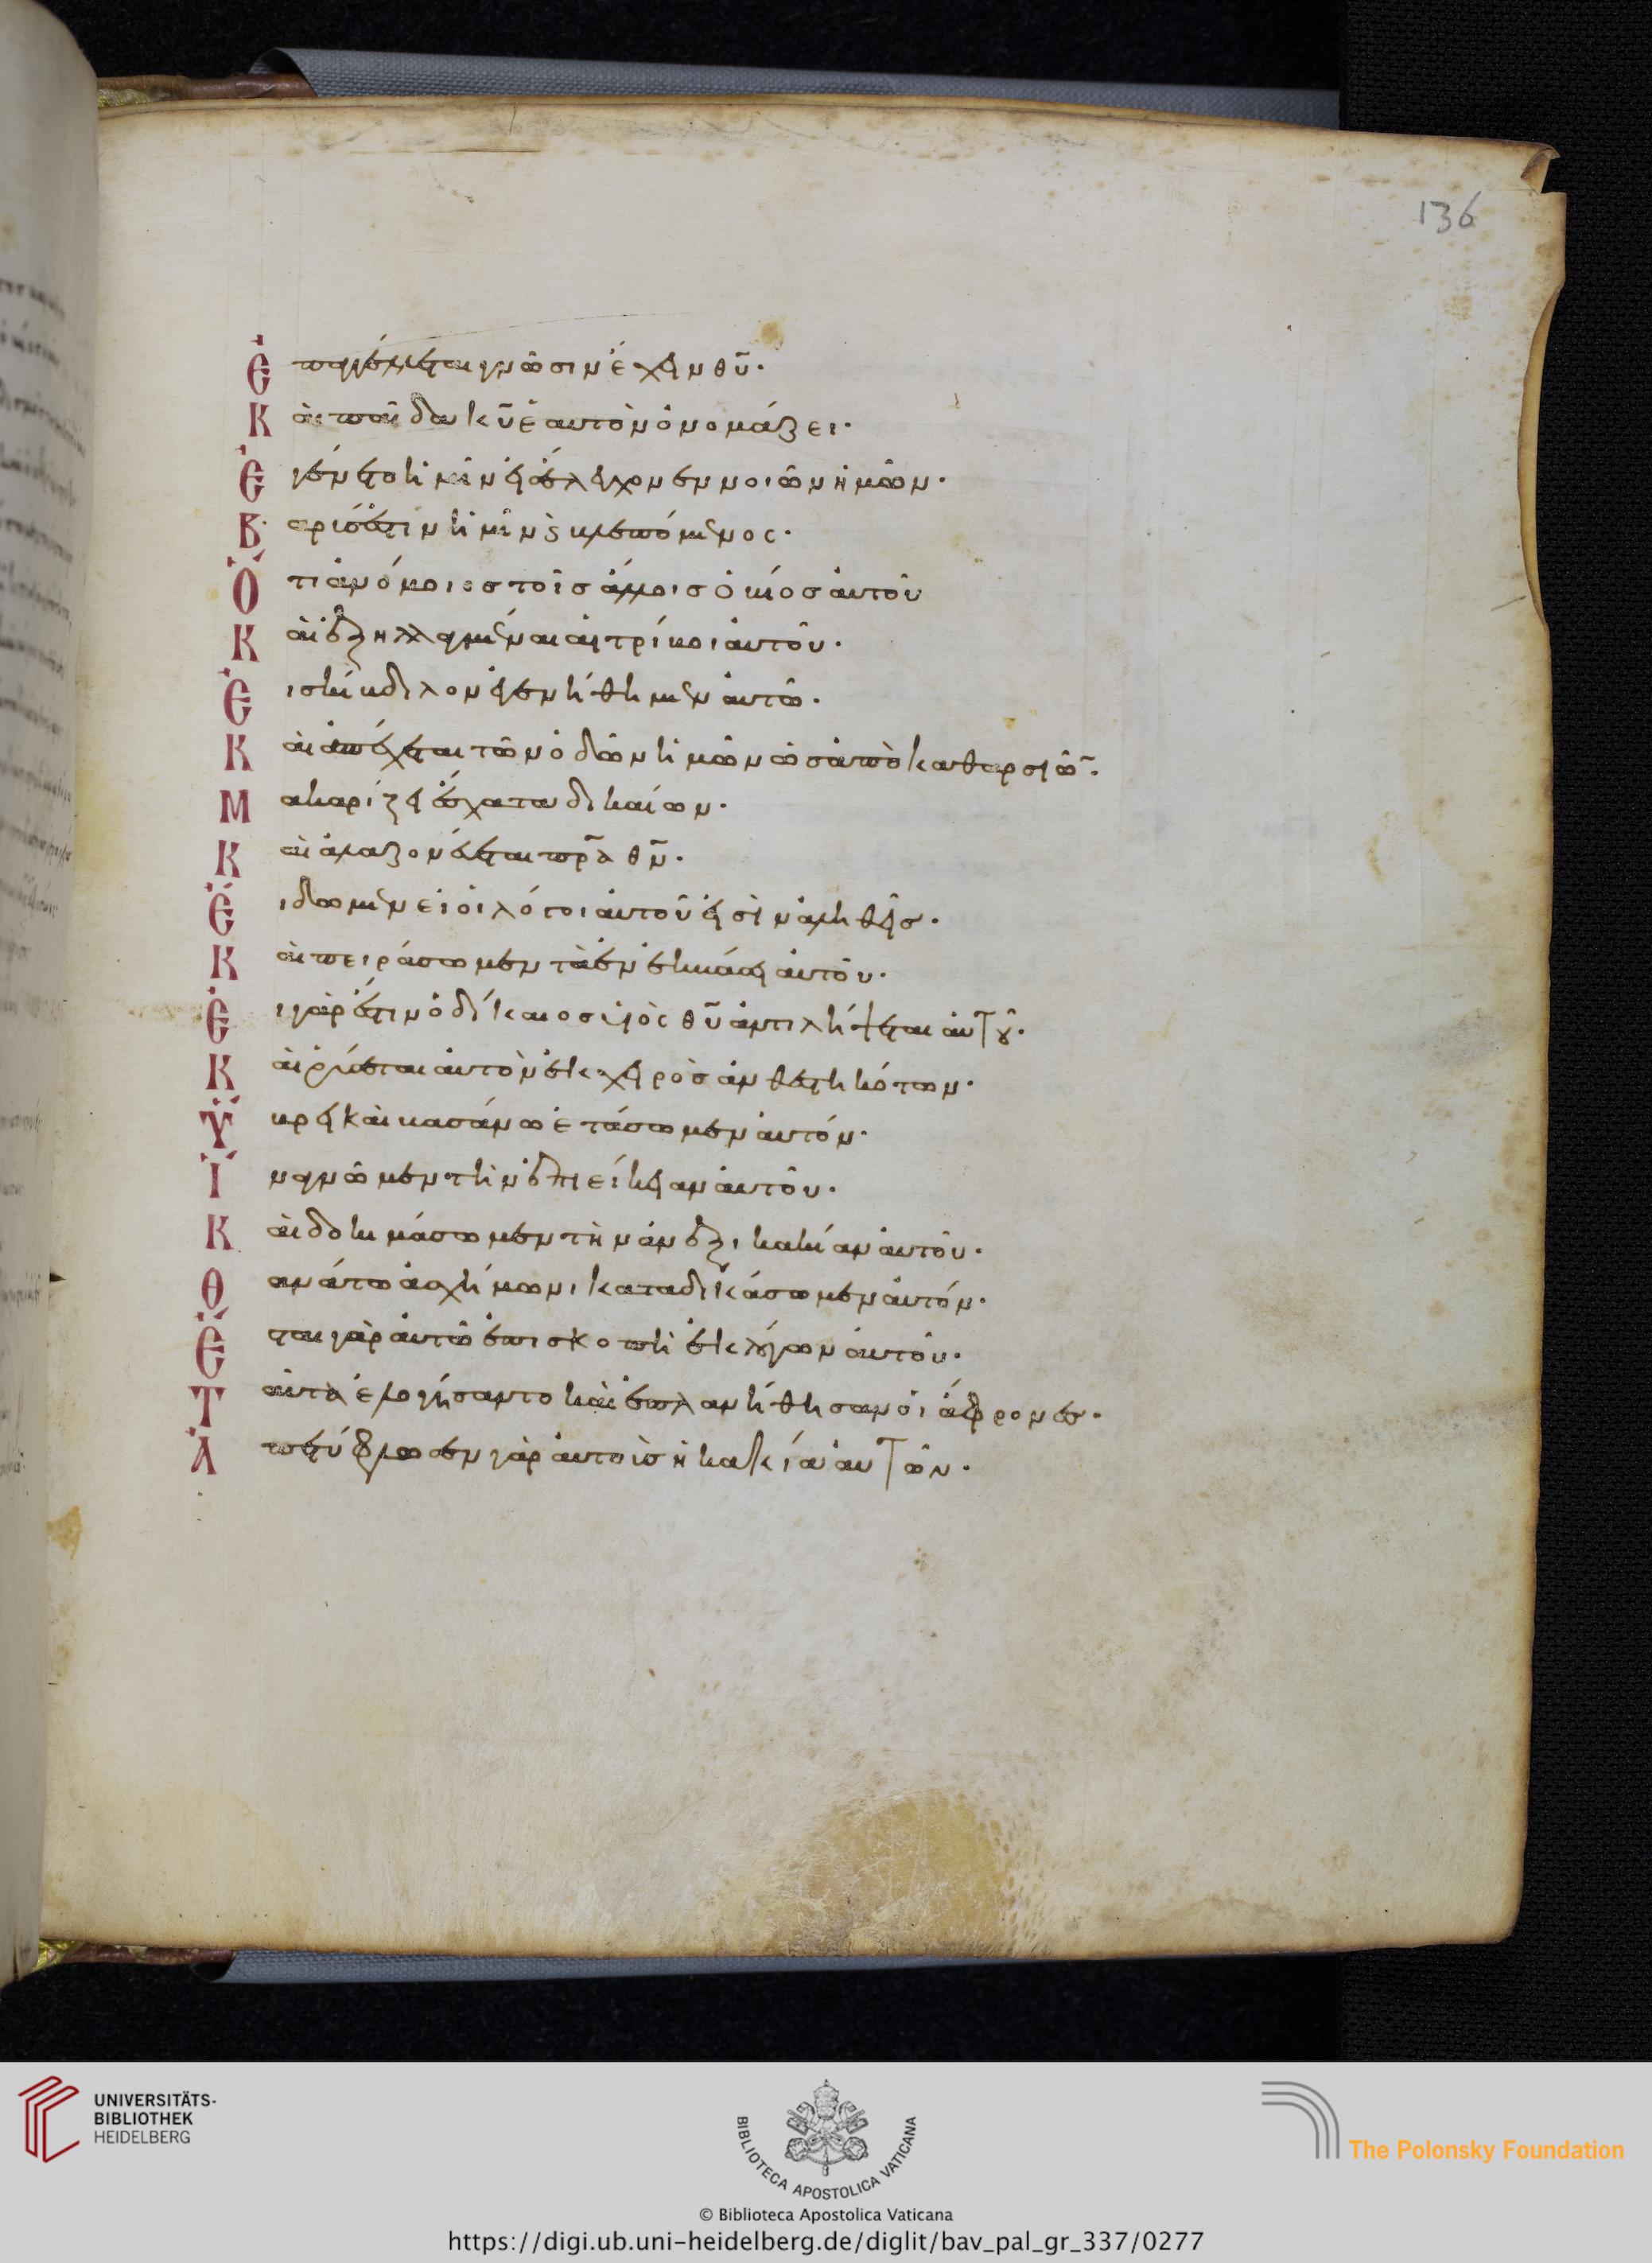 136
Ἐπαγγέλλεται γνῶσιν ἔχειν θῡ·
Καὶ παῖδα κῡ ἑαυτὸν ὀνομάζει·
Ἐγένετο ἡμῖν εἰς ἔλεγχον ἐννοιῶν ἡμῶν·
Βαρύς ἐστιν ἡμῖν καὶ βλεπόμενος·
Ὅτι ἀνόμοιος τοῖς ἄλλοις ὁ βίος αὐτοῦ
Καὶ ἐξηλλαγμέναι αἱ τρίβοι αὐτοῦ·
Εἰς κίβδηλον ἐγενήθημεν αὐτῷ·
Καὶ ἀπέχεται τῶν ὁδῶν ἡμῶν ὡς ἀπὸ ἀκαθαρσιῶ̄·
Μακαρίζει ἔσχατα δικαίων·
Καὶ ἀλαζονεύεται πρ̄α θν̄·
Ἴδωμεν εἰ οἱ λόγοι αὐτοῦ εἰσὶν ἀληθεῖς·
Καὶ πειράσωμεν τὰ ἐν ἐκβάσει αὐτοῦ·
Εἰ γάρ ἐστιν ὁ δίκαιος υἱὸς θῡ ἀντιλήψεται αὐτοῦ·
Καὶ ῥύσεται αὐτὸν ἐκ χειρὸς ἀνθεστηκότων·
Ὕβρει καὶ βασάνῳ ἐτάσωμεν αὐτόν·
Ἵνα γνῶμεν τὴν ἐπιείκειαν αὐτοῦ·
Καὶ δοκιμάσωμεν τὴν ἀνεξικακίαν αὐτοῦ·
Θανάτῳ ἀσχήμονι καταδικάσωμεν αὐτόν·
Ἔσται γὰρ αὐτῷ ἐπισκοπὴ ἐκ λόγων αὐτοῦ·
Ταῦτα ἐλογίσαντο καὶ ἐπλανήθησαν οἱ ἄφρονες·
Ἀπετύφλωσεν γὰρ αὐτοὺς ἡ κακία αὐτῶν·
UNIVERSITÄTS-
BIBLIOTHEK
HEIDELBERG
BIBLIOTECA APOSTOLICA VATICANA
The Polonsky Foundation
© Biblioteca Apostolica Vaticana
https://digi.ub.uni-heidelberg.de/diglit/bav_pal_gr_337/0277